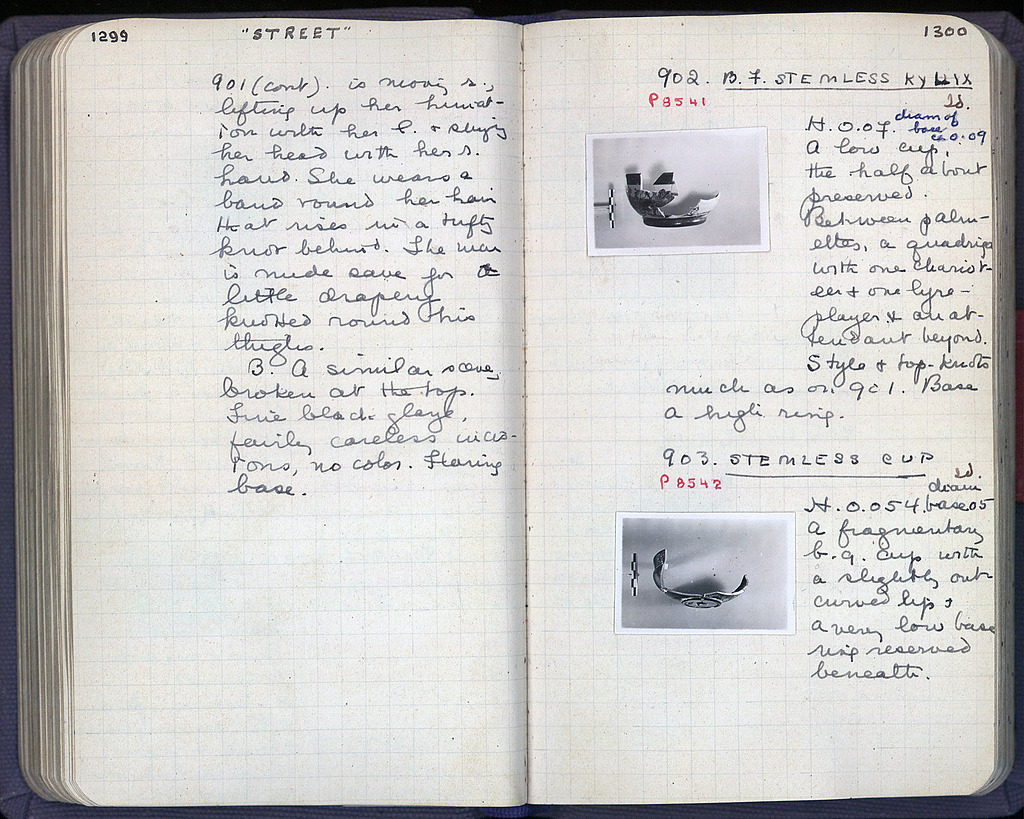 1299 "STREET"
901 (cont). is moving r.,
lifting up her himat-
ion with her l. &
her head with her r.
hand. She wears a
band round her hair
that rises in a tufty
knot behind. The man
is nude save for a
little drapery
knotted round his
thighs.
B. A similar scene,
broken at the top.
Fine black glaze,
fairly careless incis-
ions, no color. Flaring
base.
1300
902. B.F. STEMLESS KYLIX
P 8541
H. 0.07. diam of
base
ca 0.09
A low cup,
the half about
preserved.
Between palm-
ettes, a quadriga
with one chariot-
eer & one lyre-
player & an at-
tendant beyond.
Style & top-knots
much as on 901. Base
a high ring.
903. STEMLESS CUP
P 8542
diam
H. 0.054. base 05
A fragmentary
b.g. cup with
a slightly out-
curved lip &
a very low base
ring reserved
beneath.